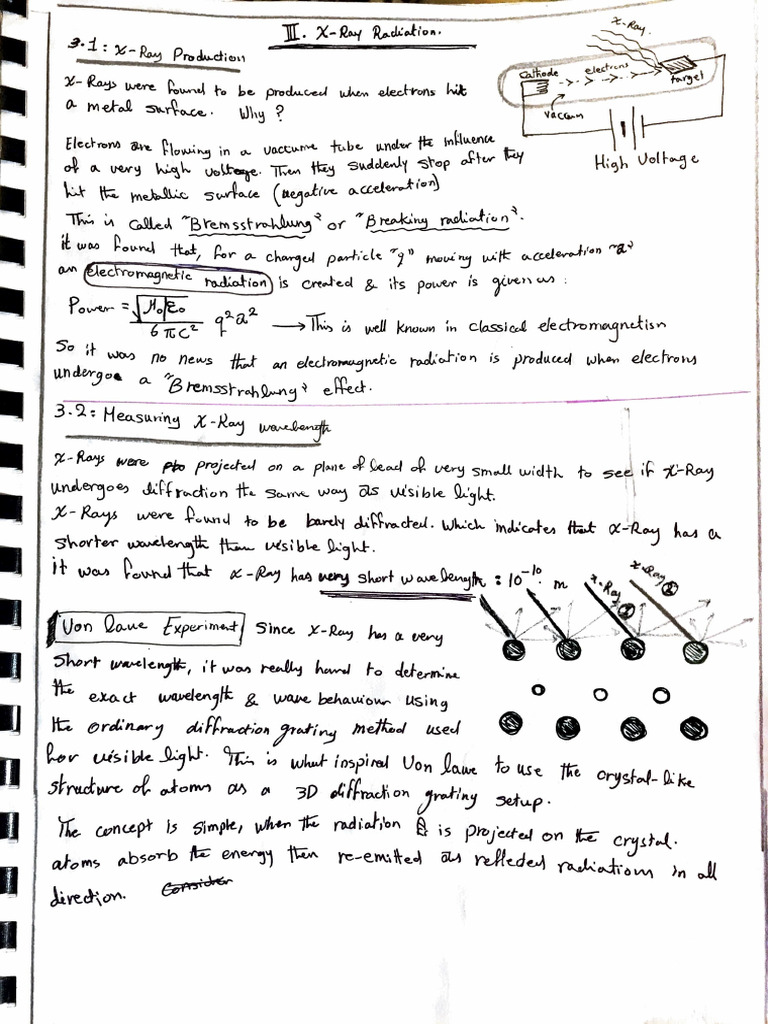 III. X-Ray Radiation.
3.1: X-Ray Production
X-Ray.
Cathode
electrons
target
vaccum
High Voltage
X-Rays were found to be produced when electrons hit
a metal surface. Why?
Electrons are flowing in a vaccume tube under the influence
of a very high voltage. Then they suddenly stop after they
hit the metallic surface (negative acceleration)
This is called "Bremsstrahlung" or "Breaking radiation".
it was found that, for a charged particle "q" moving with acceleration "a"
an electromagnetic radiation is created & its power is given as:
Power = √μ₀/ε₀ / 6πc² q²a² → This is well known in classical electromagnetism
So it was no news that an electromagnetic radiation is produced when electrons
undergoe a "Bremsstrahlung" effect.
3.2: Measuring X-Ray wavelength
X-Rays were projected on a plane of lead of very small width to see if X-Ray
undergoes diffraction the same way as visible light.
X-Rays were found to be barely diffracted. Which indicates that X-Ray has a
shorter wavelength than visible light.
it was found that X-Ray has very short wavelength: 10⁻¹⁰ m
X-Ray 1
X-Ray 2
Von laue Experiment Since X-Ray has a very
short wavelength, it was really hard to determine
the exact wavelength & wave behaviour using
the ordinary diffraction grating method used
for visible light. This is what inspired Von laue to use the crystal-like
structure of atoms as a 3D diffraction grating setup.
The concept is simple, when the radiation is projected on the crystal.
atoms absorb the energy then re-emitted as reflected radiations in all
direction. Consider